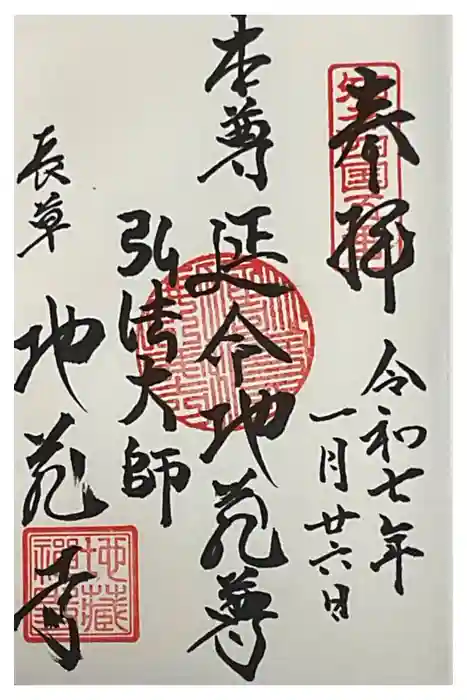 奉拝
令和七年
一月廿六日
本尊 延命地蔵尊
弘法大師
長草 地蔵寺
地藏